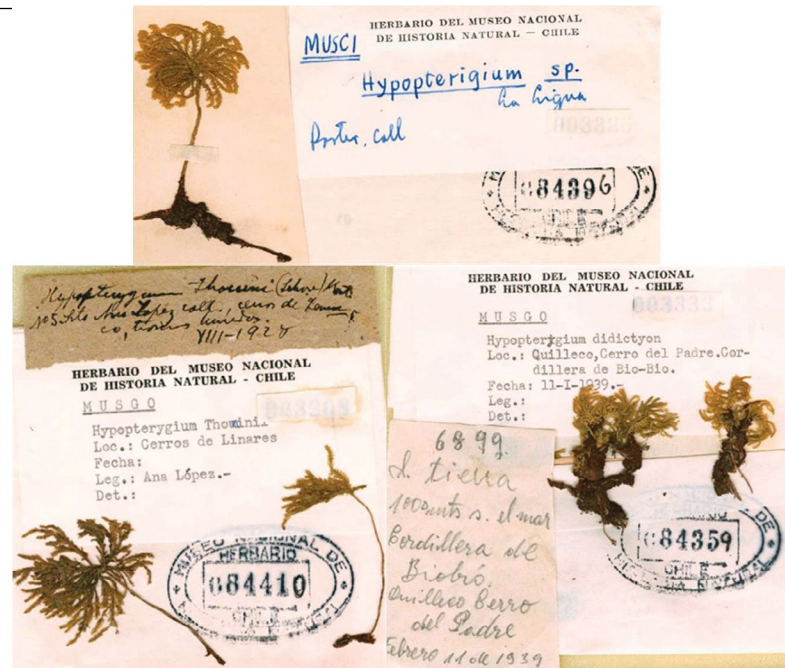 HERBARIO DEL MUSEO NACIONAL
DE HISTORIA NATURAL — CHILE
MUSCI
Hypopterigium sp.
La Ligua
Porter, coll
003326
084396
CHILE
Hypopterygium Thouini
Nº5 coll. cerros de
VIII-1928
HERBARIO DEL MUSEO NACIONAL
DE HISTORIA NATURAL - CHILE
MUSGO
Hypopterygium Thouinii
Loc.: Cerros de Linares
Fecha:
Leg.: Ana López.-
Det.:
MUSEO NACIONAL DE
HERBARIO
084410
CHILE
HISTORIA NATURAL
HERBARIO DEL MUSEO NACIONAL
DE HISTORIA NATURAL - CHILE
003333
MUSGO
Hypopterygium didictyon
Loc.: Quilleco,Cerro del Padre.Cor-
dillera de Bio-Bio.
Fecha: 11-I-1939.-
Leg.:
Det.:
084359
CHILE
HISTORIA NATURAL
6899.
tierra
1000 mts s. el mar
Cordillera de
Biobió.
Quilleco Cerro
del Padre
Febrero 11 de 1939